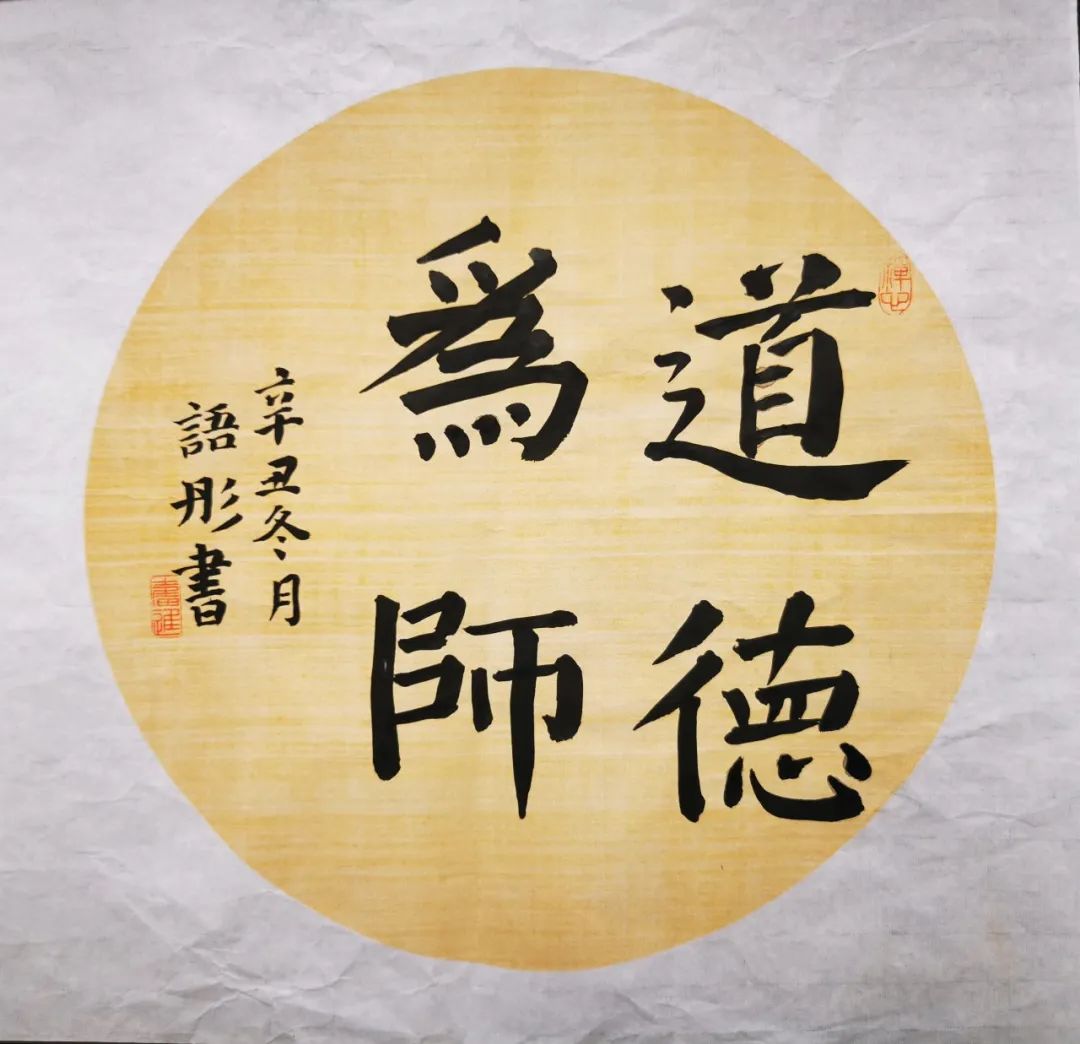 道德
爲師
辛丑冬月
語彤書